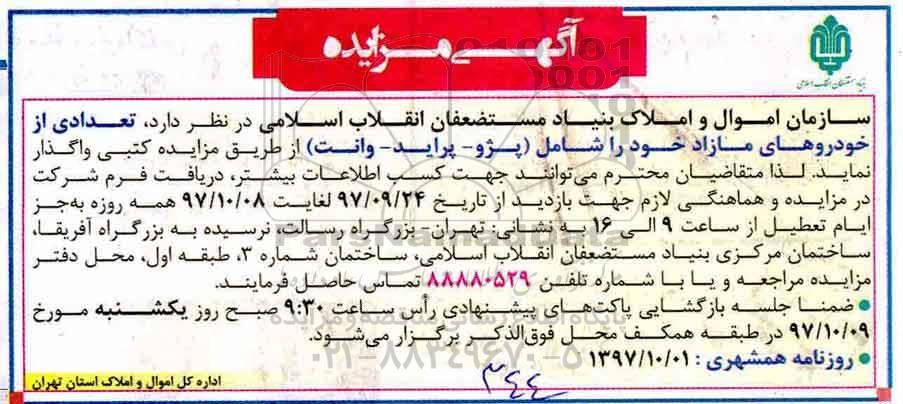 آگهی مزایده
بنیاد مستضعفان انقلاب اسلامی
سازمان اموال و املاک بنیاد مستضعفان انقلاب اسلامی در نظر دارد، تعدادی از
خودروهای مازاد خود را شامل (پژو- پراید- وانت) از طریق مزایده کتبی واگذار
نماید. لذا متقاضیان محترم می‌توانند جهت کسب اطلاعات بیشتر، دریافت فرم شرکت
در مزایده و هماهنگی لازم جهت بازدید از تاریخ ۹۷/۰۹/۲۴ لغایت ۹۷/۱۰/۰۸ همه روزه به‌جز
ایام تعطیل از ساعت ۹ الی ۱۶ به نشانی: تهران- بزرگراه رسالت، نرسیده به بزرگراه آفریقا،
ساختمان مرکزی بنیاد مستضعفان انقلاب اسلامی، ساختمان شماره ۳، طبقه اول، محل دفتر
مزایده مراجعه و یا با شماره تلفن ۸۸۸۸۰۵۲۹ تماس حاصل فرمایند.
● ضمنا جلسه بازگشایی پاکت‌های پیشنهادی رأس ساعت ۹:۳۰ صبح روز یکشنبه مورخ
۹۷/۱۰/۰۹ در طبقه همکف محل فوق‌الذکر برگزار می‌شود.
● روزنامه همشهری : ۱۳۹۷/۱۰/۰۱
۳۴۴
اداره کل اموال و املاک استان تهران
ParsNamadData
پایگاه اطلاع رسانی مناقصه و مزایده
۰۲۱-۸۸۳۴۹۶۷۰-۵